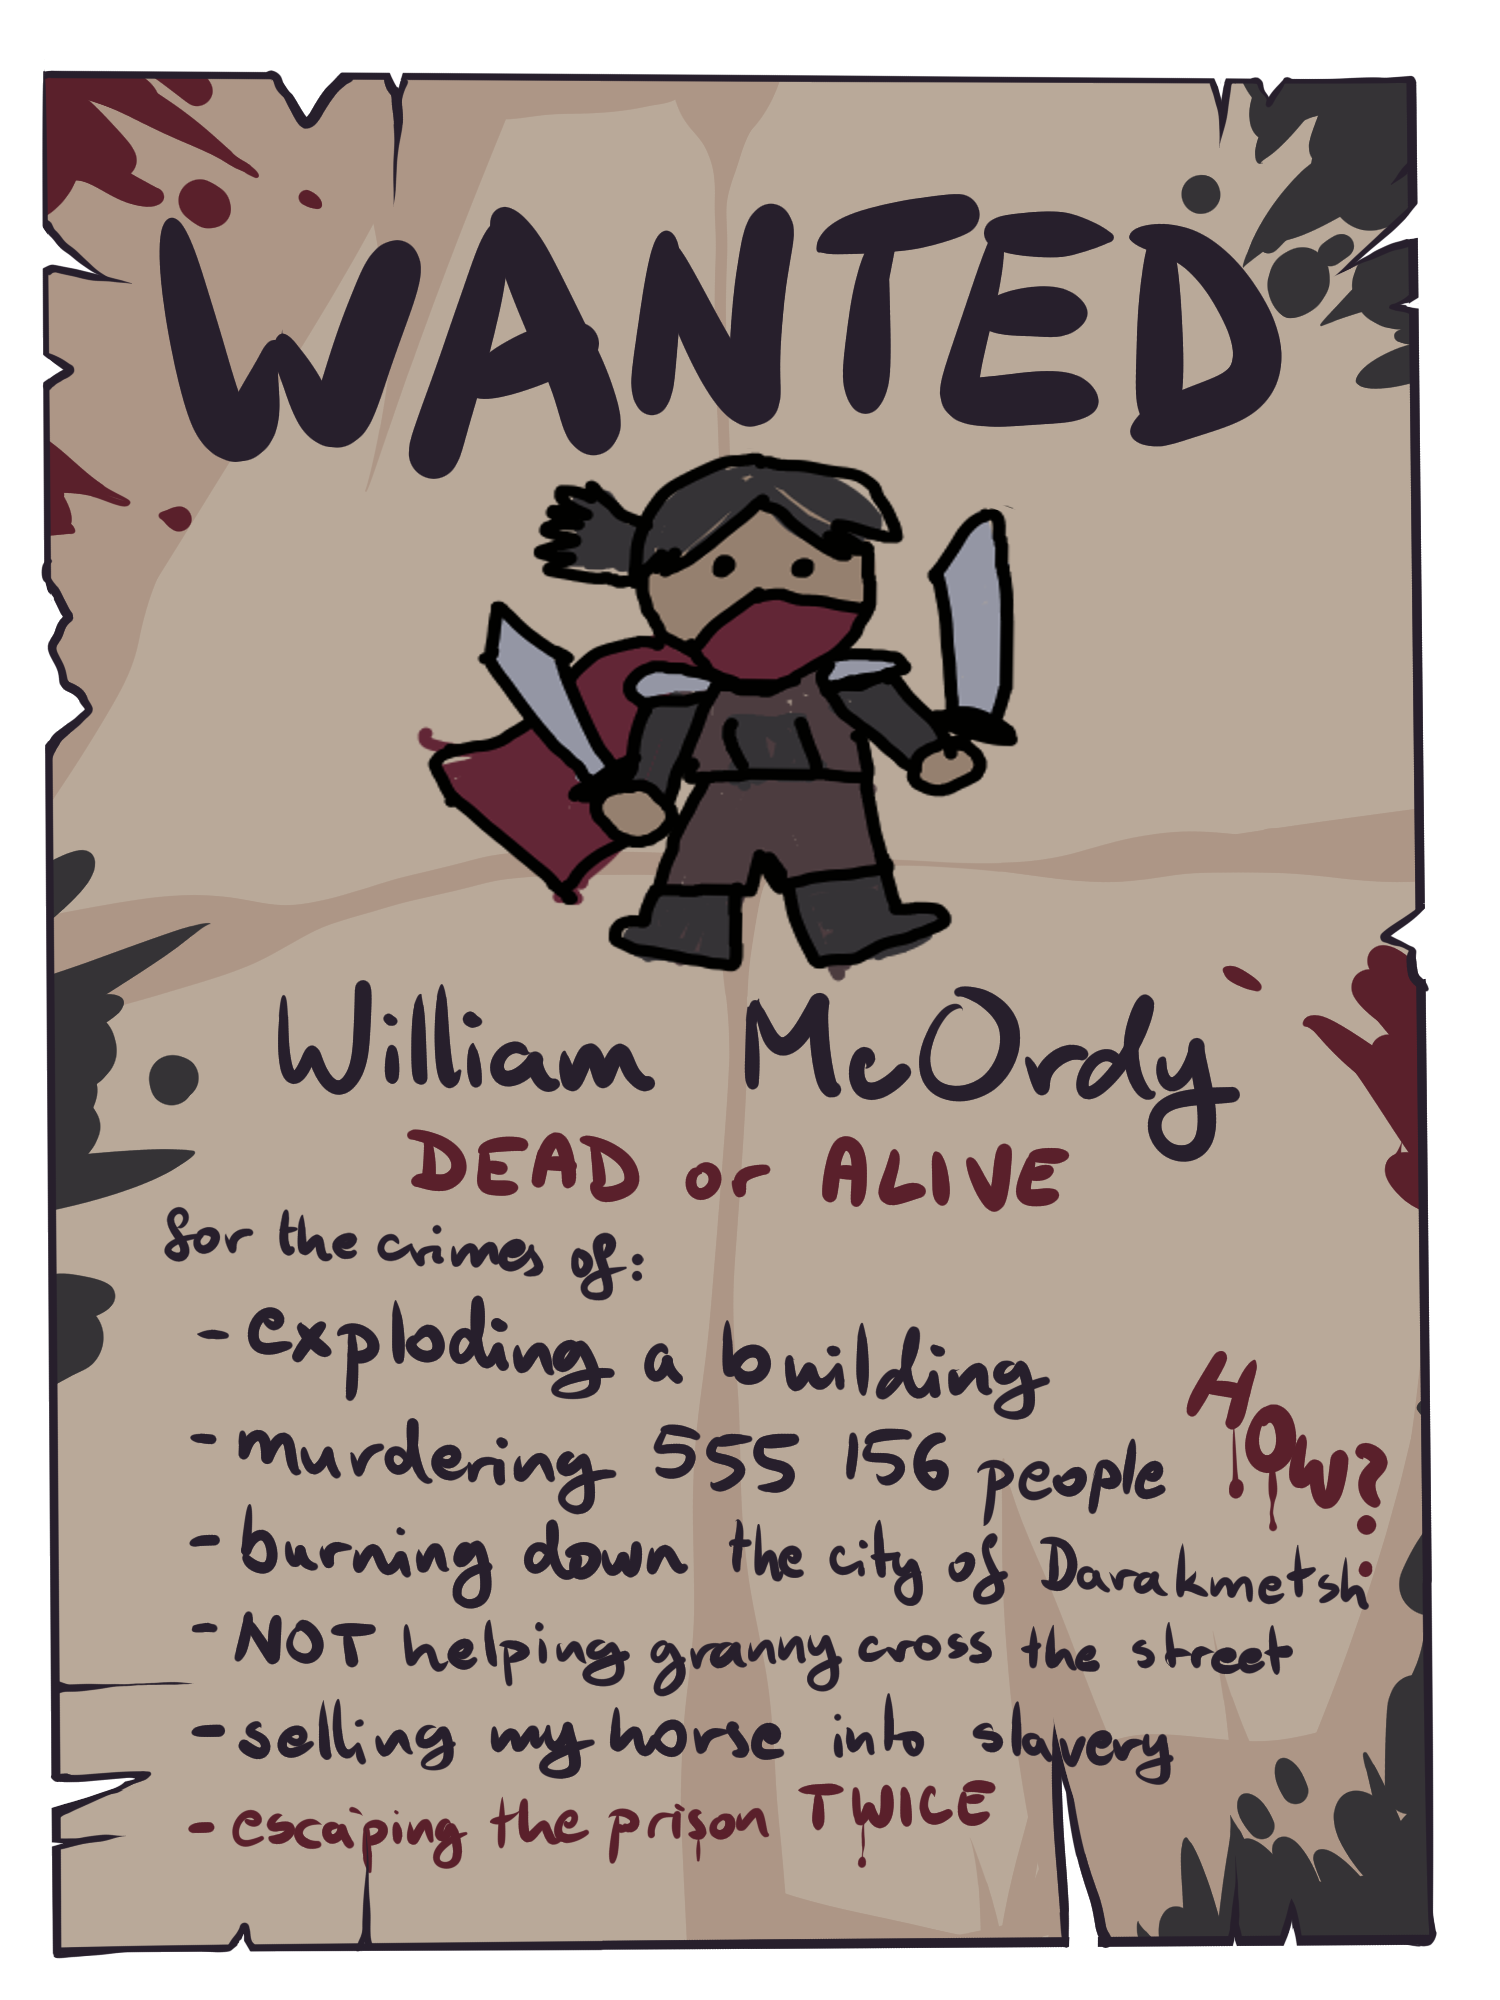 WANTED
William McOrdy
DEAD or ALIVE
for the crimes of:
- exploding a building
- murdering 555 156 people
HOW?
- burning down the city of Darakmetsh
- NOT helping granny cross the street
- selling my horse into slavery
- escaping the prison TWICE